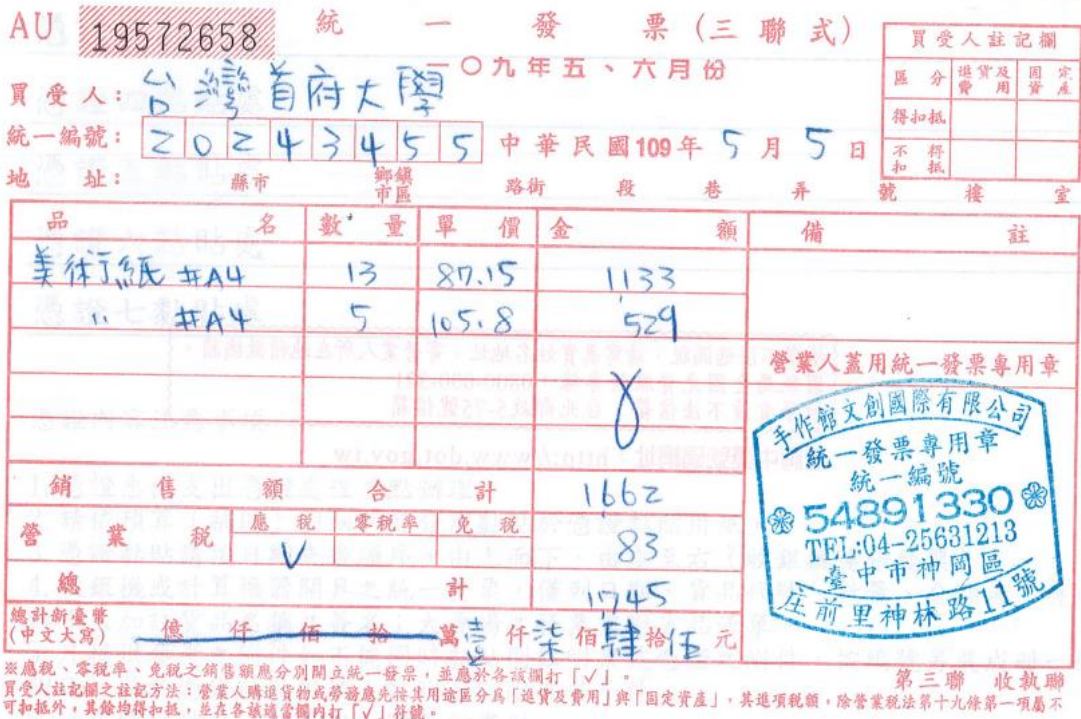 AU 19572658 統一發票(三聯式)
一〇九年五、六月份
買受人註記欄
區分 進貨及費用 固定資產
得扣抵
不得扣抵
買受人: 台灣首府大學
統一編號: 20243455 中華民國109年5月5日
地址: 縣市 鄉鎮市區 路街 段 巷 弄 號 樓 室
品名 數量 單價 金額 備註
美術紙 #A4 13 87.15 1133
〃 #A4 5 105.8 529
營業人蓋用統一發票專用章
銷售額合計 1662
營業稅 應稅 √ 零稅率 免稅 83
總計 1745
總計新臺幣(中文大寫) 億仟佰拾萬壹仟柒佰肆拾伍元
手作館文創國際有限公司
統一發票專用章
統一編號
54891330
TEL:04-25631213
臺中市神岡區
庄前里神林路11號
※應稅、零稅率、免稅之銷售額應分別開立統一發票,並應於各該欄打「√」。
第三聯 收執聯
買受人註記欄之註記方法:營業人購進貨物或勞務應先按其用途區分為「進貨及費用」與「固定資產」,其進項稅額,除營業稅法第十九條第一項屬不
可扣抵外,其餘均得扣抵,並在各該適當欄內打「√」符號。